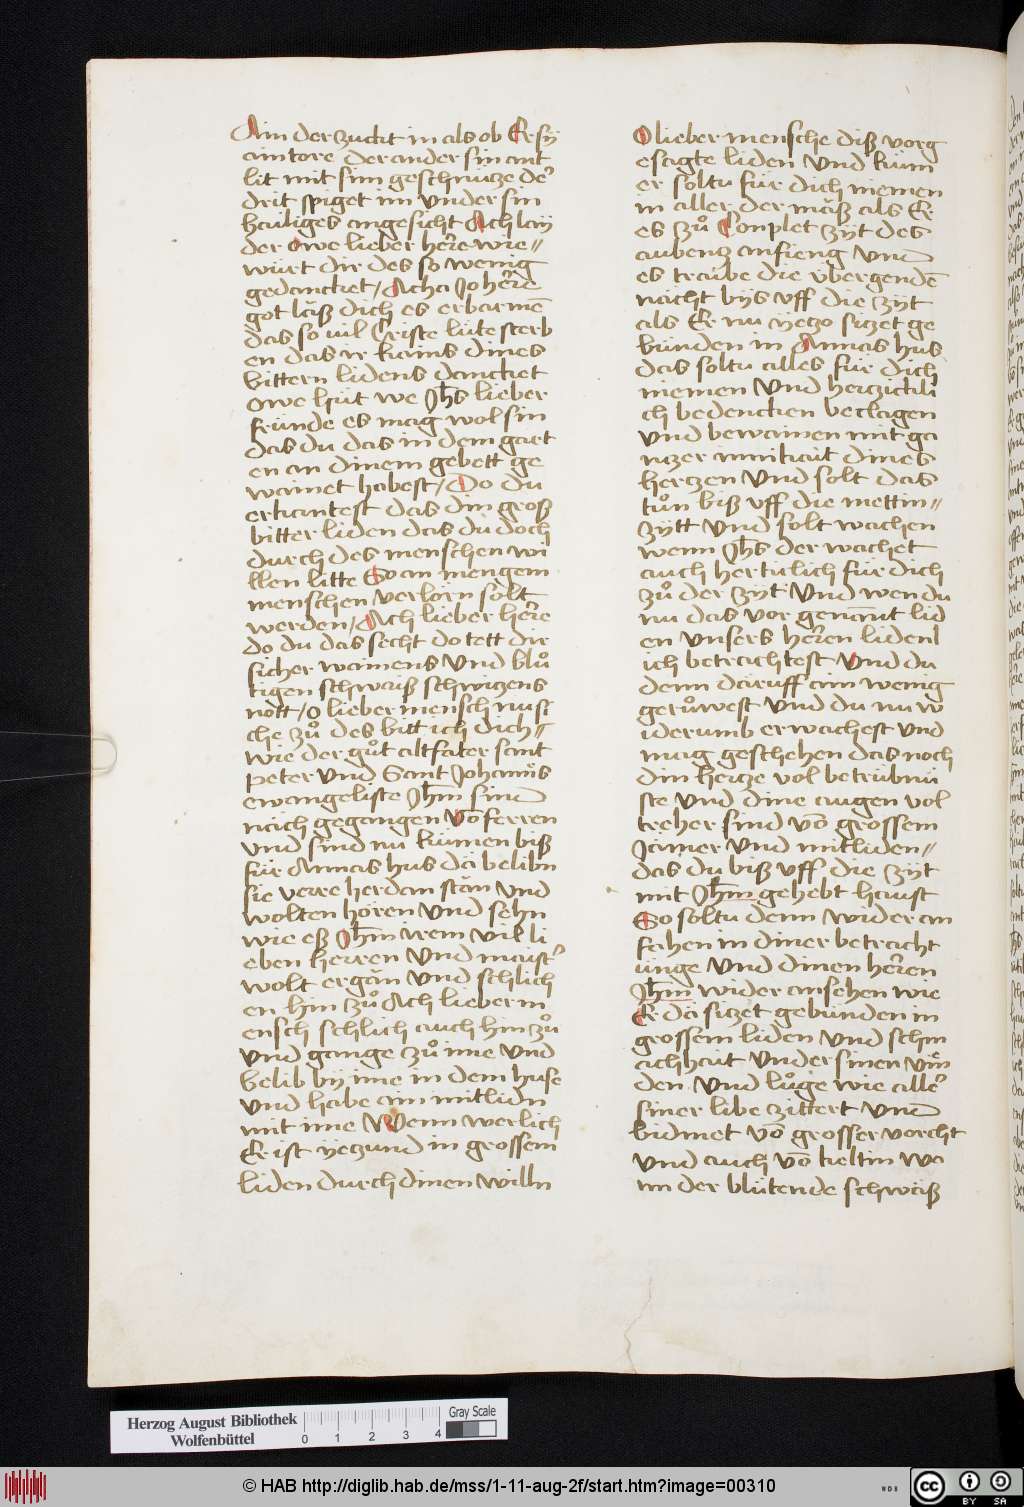 Ain der zucht in als ob Er sÿ
ain tore der ander sin ant
lit mit sim geschnutze de͛
drit spiget im vnder sin
hailiges angesicht Ach laÿ
der owe lieber her̄e wie〃
würt dir des so wenig
gedancket / Acha Jo her̄e
got läß dich es erbarmē
das so vil Criste lüte sterb
en das ir kains dines
bittern lidens dancket
owe hüt we Jh̄s lieber
fründe es mag wol sin
das du das in dem gart
en an dinem gebett ge
wainet habest / Do du
erkantest das din groß
bitter liden das du doch
durch des menschen wi
llen litte So an mengem
menschen verlorn solt
werden / Ach lieber her̄e
do du das secht do tett dir
sicher wainens vnd blů
tigen schwaiß schwizens
nott / o lieber mensch nust
che zů des bitt ich dich〃
wie der gůt altfater sant
peter vnd Sant Johanēs
ewangeliste Jh̄m sind
nach gegangen vō ferren
vnd sind nu kumen biß
für Annas hus da belibn
sie verre herdan stan vnd
wolten hören vnd sehn
wie eß Jh̄m irem vil li
eben herren vnd maist͛
wolt ergan vnd schlich
en hin zů Ach lieber m
ensch schlich auch hin zů
vnd gange zů ime vnd
belib bÿ ime in dem huse
vnd habe ain mitlidn
mit ime Wenn werlich
Er ist ÿezund in grossem
liden durch dinen willn
O lieber mensche diß vorg
esagte liden vnd kum
er soltu für dich niemen
in aller der mäß als Er
es zů Conplet zÿt des
aubenz anfieng vnd
es traübe die übergendē
nacht bÿs vff die zÿt
als Er nu ÿezo sizet ge
bunden in Annas hus
das soltu alles für dich
niemen vnd herzickli
ch bedencken beclagen
vnd bewainen mit ga
nzer innikait dines
hertzen vnd solt das
tůn biß vff die mettin〃
zÿtt vnd solt wachen
wenn Jh̄s der wachet
auch hertiklich für dich
zů der zÿt vnd wen du
nu das vor genāmt lid
en vnsers her̄en liden
ich betrachtest vnd du
denn däruff ain wenig
gerůwest vnd du nu w
iderumb erwachest vnd
mag geschehen das noch
din hertze vol betrübnü
ste vnd dine augen vol
treher sind vō grossem
Jamer vnd mitliden〃
das du biß vff die zÿt
mit Jh̄m gehebt haust
So soltu denn wider an
fahen in diner betracht
unge vnd dinen her̄en
Jh̄m wider ansehen wie
Er da sizet gebunden in
grossem liden vnd schm
achhait vnder sinen vin̄
den vnd lůge wie alle͛
siner libe zittert vnd
bidmet vō grosser vorcht
vnd auch vō keltin wa
nn der blütende schwaiß
Herzog August Bibliothek
Wolfenbüttel
0 1 2 3 4
Gray Scale
© HAB http://diglib.hab.de/mss/1-11-aug-2f/start.htm?image=00310
WDB
BY SA